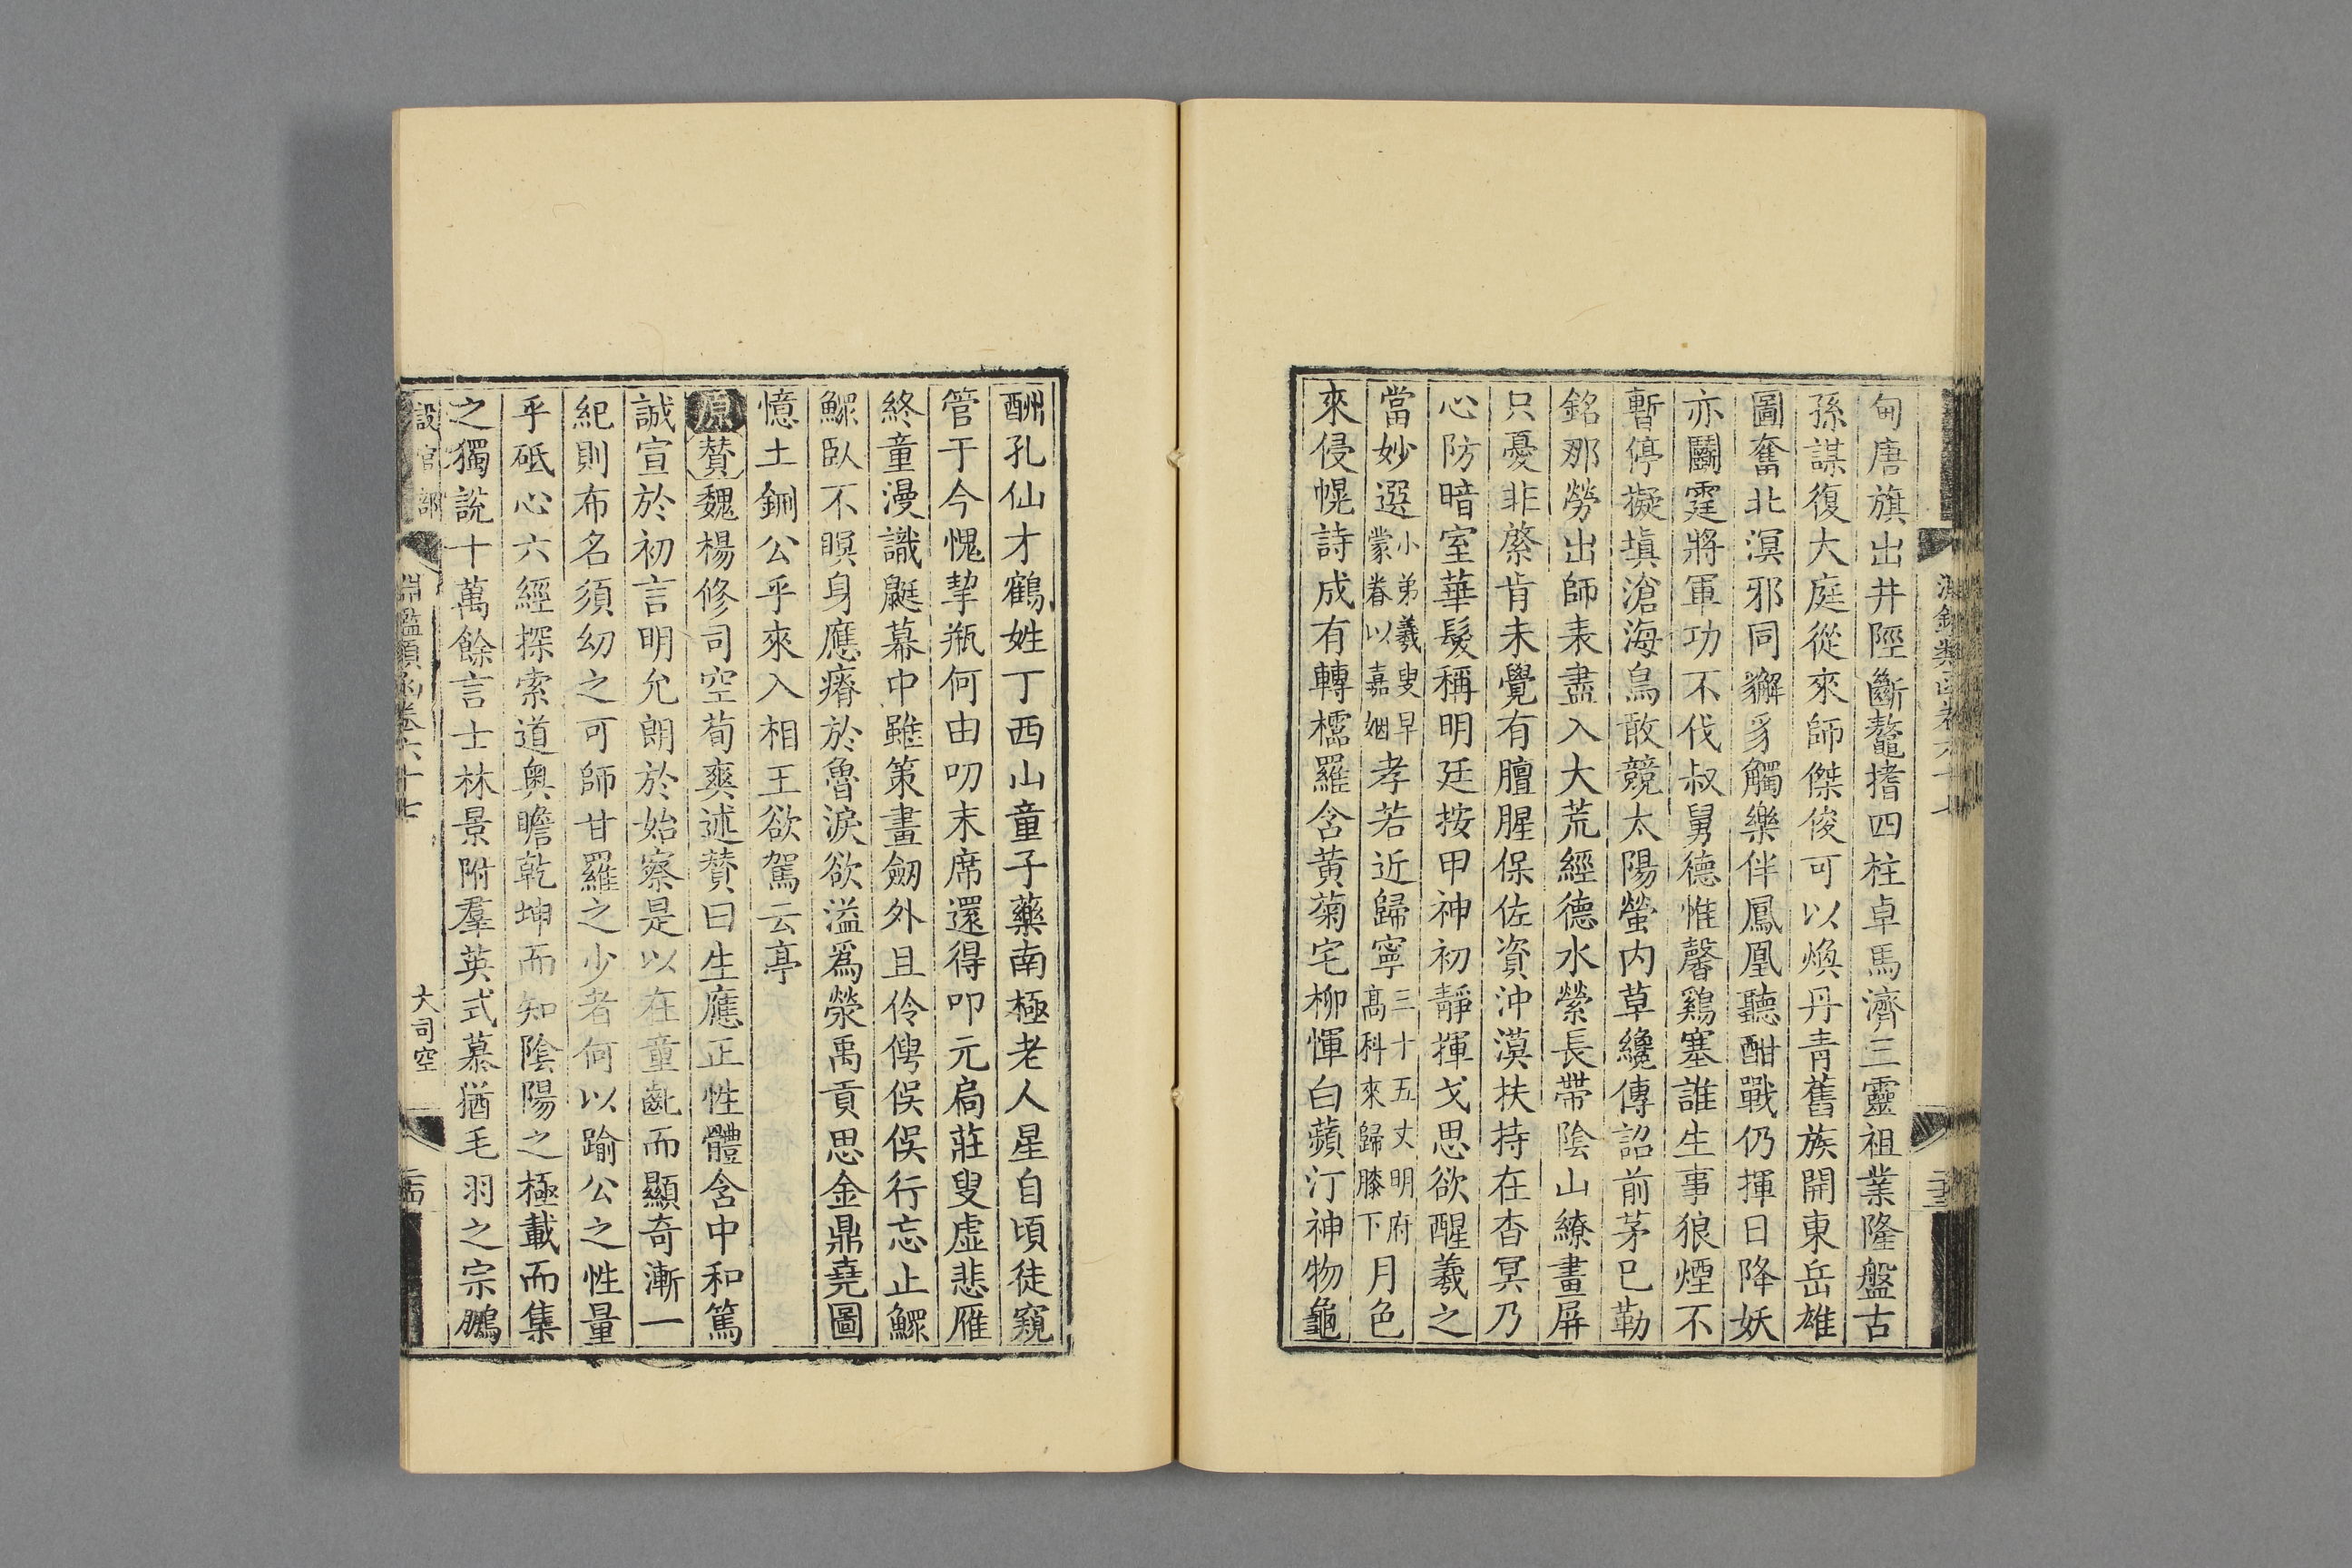 甸唐旗出井陘斷鼇搘四柱卓馬濟三靈祖業隆盤古
孫謀復大庭從來師傑俊可以煥丹青舊族開東岳雄
圖奮北溟邪同獬豸觸樂伴鳳凰聽酣戰仍揮日降妖
亦鬭霆將軍功不伐叔舅德惟馨鷄塞誰生事狼煙不
暫停擬塡滄海鳥敢競太陽螢内草纔傳詔前茅已勒
銘那勞出師表盡入大荒經德水縈長帶陰山繚畫屏
只憂非綮肯未覺有膻腥保佐資沖漠扶持在杳冥乃
心防暗室華髮稱明廷按甲神初靜揮戈思欲醒羲之
當妙選小弟羲叟早蒙眷以嘉姻孝若近歸寧三十五丈明府高科來歸膝下月色
來侵幌詩成有轉櫺羅含黄菊宅柳惲白蘋汀神物龜
酬孔仙才鶴姓丁西山童子藥南極老人星自頃徒窺
管于今愧挈瓶何由叨末席還得叩元扃莊叟虛悲雁
終童漫識鼮幕中雖策畫劒外且伶俜俁俁行忘止鰥
鰥臥不瞑身應瘠於魯淚欲溢爲滎禹貢思金鼎堯圖
憶土鉶公乎來入相王欲駕云亭
原贊魏楊修司空荀爽述贊曰生應正性體含中和篤
誠宣於初言明允朗於始察是以在童齔而顯奇漸一
紀則布名須幼之可師甘羅之少者何以踰公之性量
乎砥心六經探索道奥瞻乾坤而知陰陽之極載而集
之獨說十萬餘言士林景附羣英式慕猶毛羽之宗鵬
設官部 淵鑑類函卷六十七 大司空